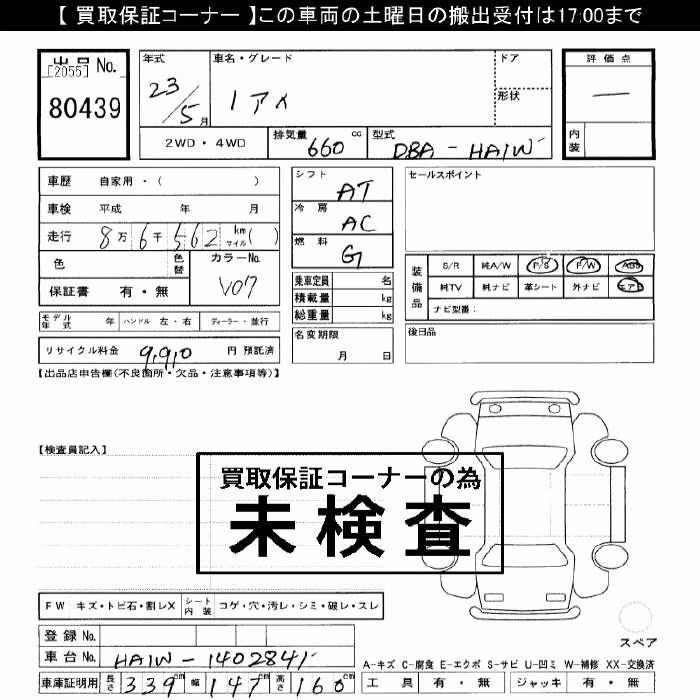 【 買取保証コーナー 】この車両の土曜日の搬出受付は17:00まで
出品 No.
[2055]
80439
年式
23/5 月
車名・グレード
iアメ
ドア
形状
評価点
—
内装
2WD・4WD
排気量 660 cc
型式 DBA - HA1W
車歴 自家用・( )
車検 平成 年 月
走行 8万6千562 km マイル( )
色 色替 カラーNo. V07
保証書 有・無
モデル年式 年 ハンドル 左・右 ディーラー・並行
リサイクル料金 9,910 円 預託済
シフト AT
冷房 AC
燃料 G
乗車定員 名
積載量 kg
総重量 kg
名変期限
月 日
セールスポイント
装備品
S/R 純A/W P/S P/W ABS
純TV 純ナビ 革シート 外ナビ エアB
ナビ型番:
後日品
【出品店申告欄(不良箇所・欠品・注意事項等)】
【検査員記入】
買取保証コーナーの為
未検査
FW キズ・トビ石・割レX シート内装 コゲ・穴・汚レ・シミ・破レ・スレ
登録 No.
車台 No. HA1W - 1402841
車庫証明用 長さ 339 cm 幅 147 cm 高さ 160 cm
スペア
A-キズ C-腐食 E-エクボ S-サビ U-凹ミ W-補修 XX-交換済
工具 有・無 ジャッキ 有・無